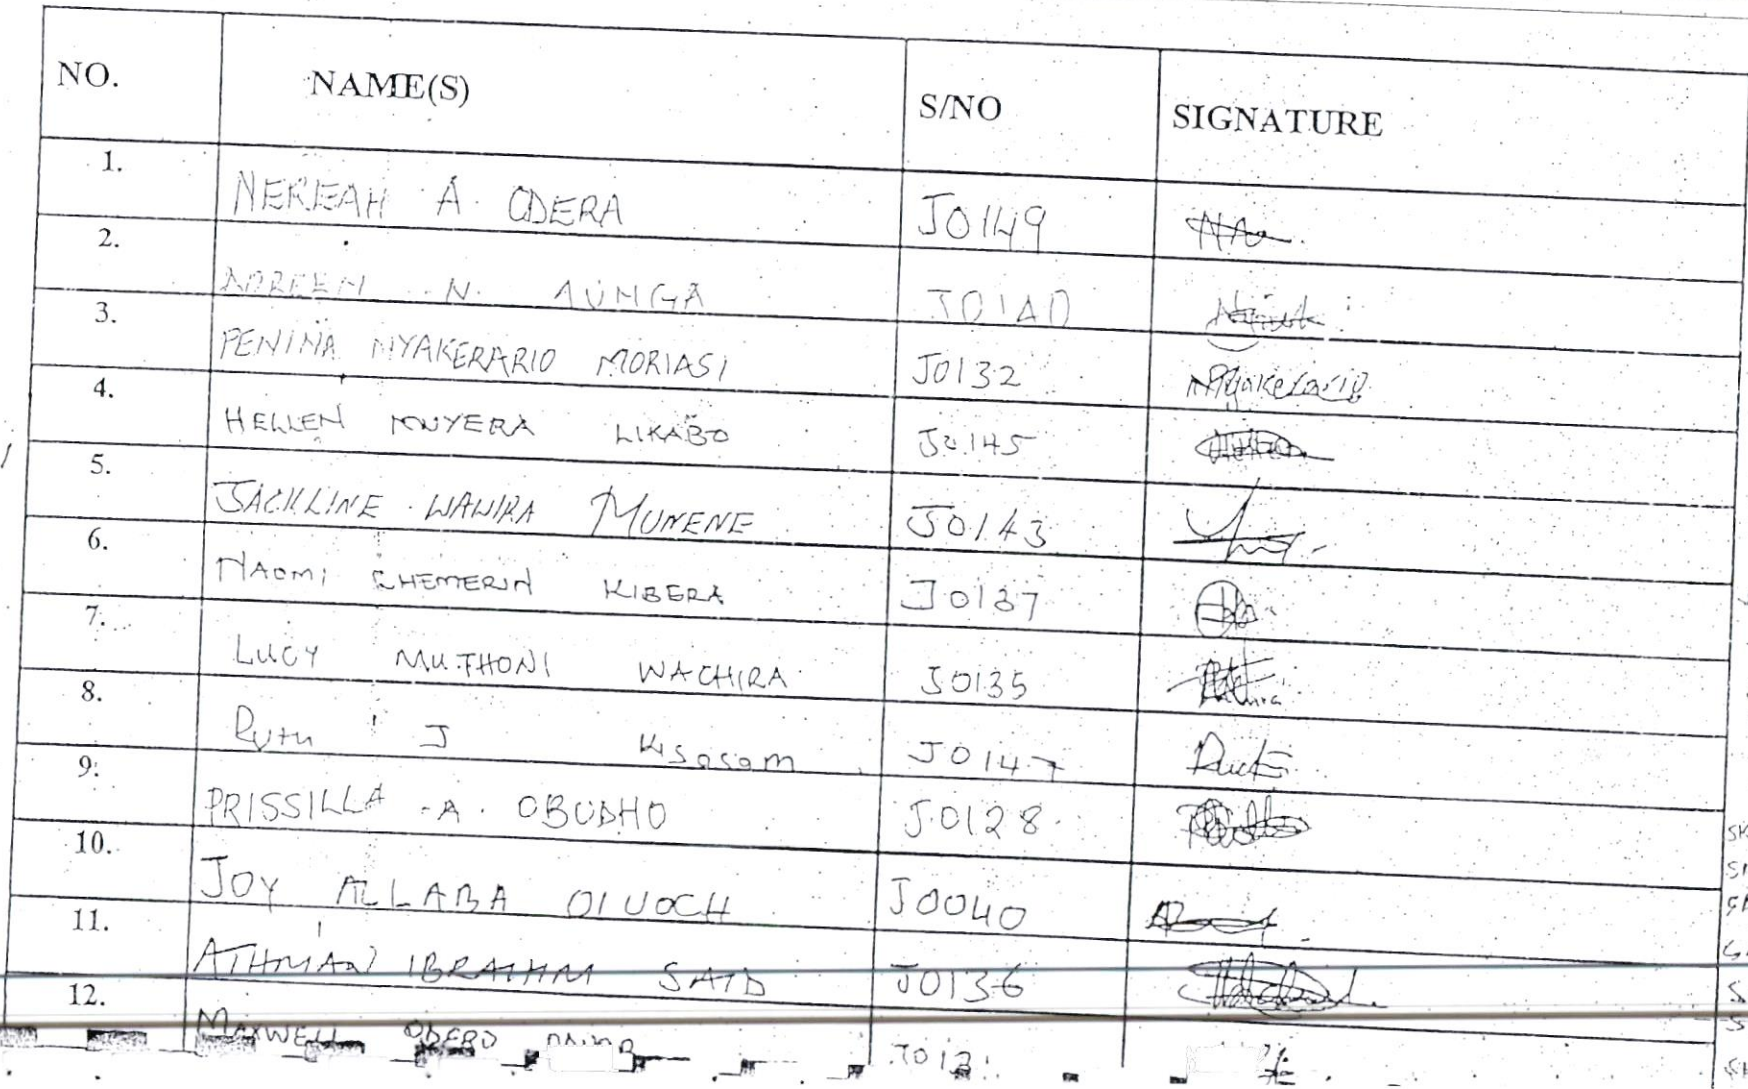 NO. NAME(S) S/NO SIGNATURE
1. NEREAH A. ODERA J0149
2. N. J0140
3. PENINA NYAKERARIO MORIASI J0132 Nyakerario
4. HELLEN LIKABO J0145
5. JACKLINE WAWIRA MUNENE J0143
6. NAOMI CHEMERIN KIBERA J0137
7. LUCY MUTHONI WACHIRA J0135
8. Ruth J Kisasam J0147 Ruth
9. PRISSILLA A. OBUDHO J0128
10. JOY ALLABA OLUOCH J0040
11. ATHMAN IBRAHIM SAID J0136
12. MAXWELL ODERO